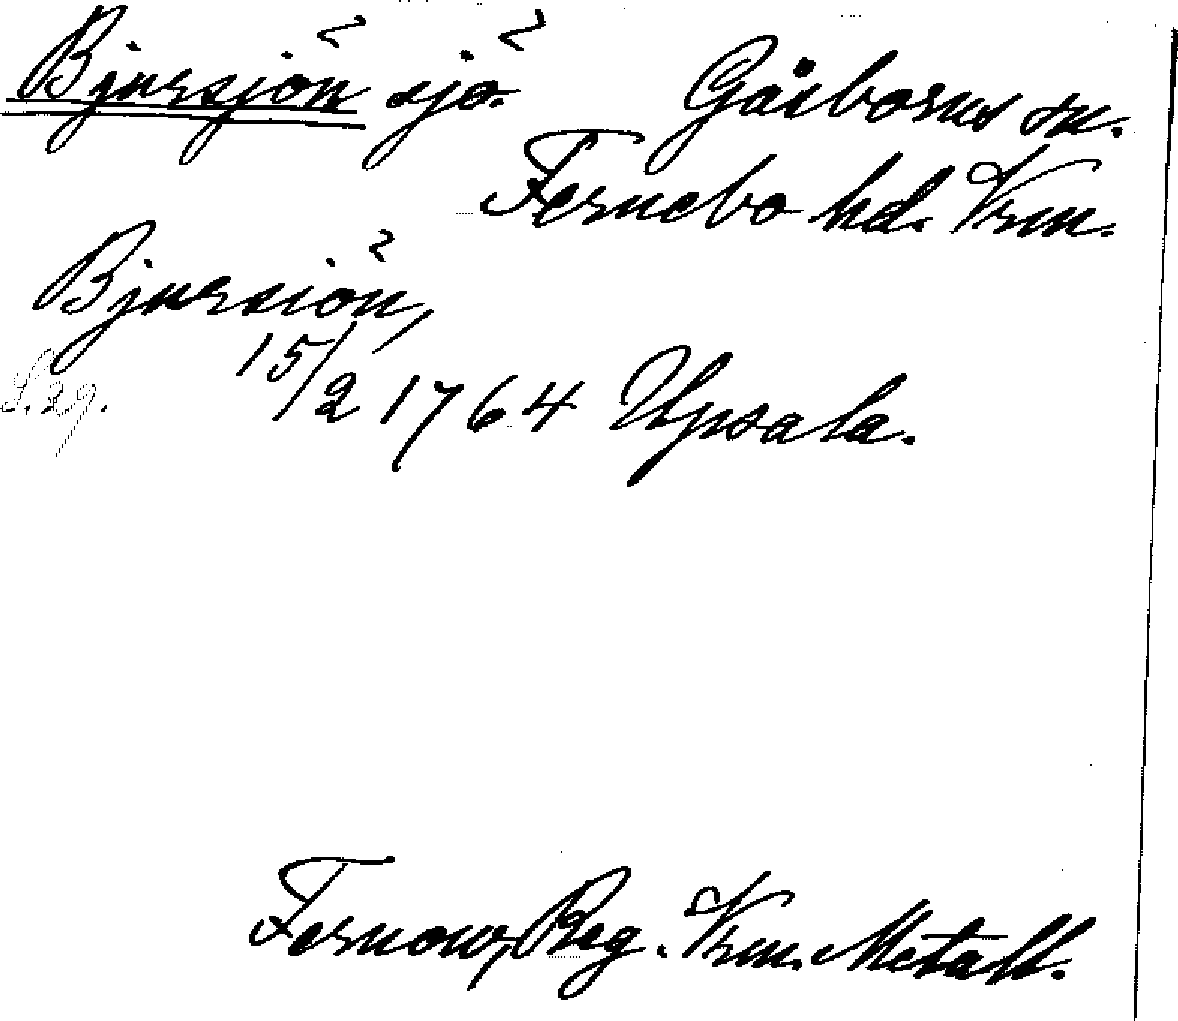 Bjursjön sjö. Gåsborns sn.
Fernebo hd. Vrm.
Bjursiön,
S. 29. 15/2 1764 Upsala.
Fernow, Reg. Vrm. Metall.